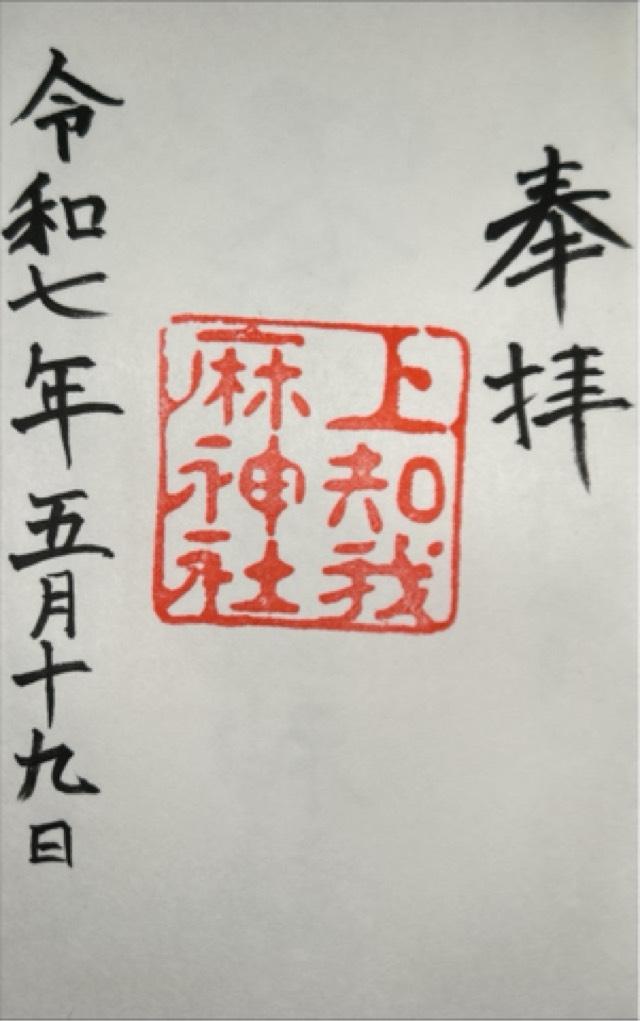 奉拝
上知我
麻神社
令和七年五月十九日